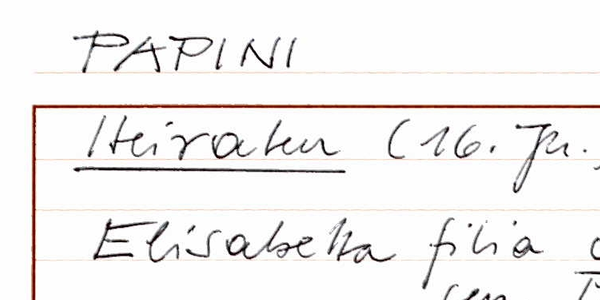 PAPINI
Heiraten (16. Jh.
Elisabetta filia